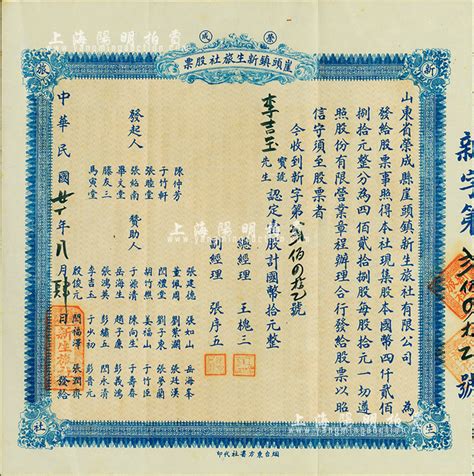 榮成
崖頭鎮新生旅社股票
新
旅
生
社
山東省榮成縣崖頭鎮新生旅社有限公司 為
發給股票事照得本社現集股本國幣四仟貳佰
捌拾元整分為四佰貳拾捌股每股拾元一切遵
照股份有限營業章程辦理合行發給股票以昭
信守須至股票者
今收到新字第貳佰號
李吉玉 寶號 先生 認定壹股計國幣拾元整
總經理 王槐三
副經理 張序五
發起人
陳仲芳
于竹軒
張睦堂
張紹南
畢文堂
滕友三
馬寅堂
贊助人
張建德 張如山 岳海峯
董佩周 劉絮瀾 張廷漢
閻禮堂 劉子東 張夢蘭
胡竹熙 姜福山 于竹臣
于源清 陳向生 于壽春
岳海生 趙子廉 彭義鴻
張鴻英 彭繡五 閻永清
李吉玉 于少初 彭晉元
殷俊元 閻福澤 張潤齋
中華民國廿一年八月肆日發給
烟台東方書社代印
新字第貳佰號
上海陽明拍賣